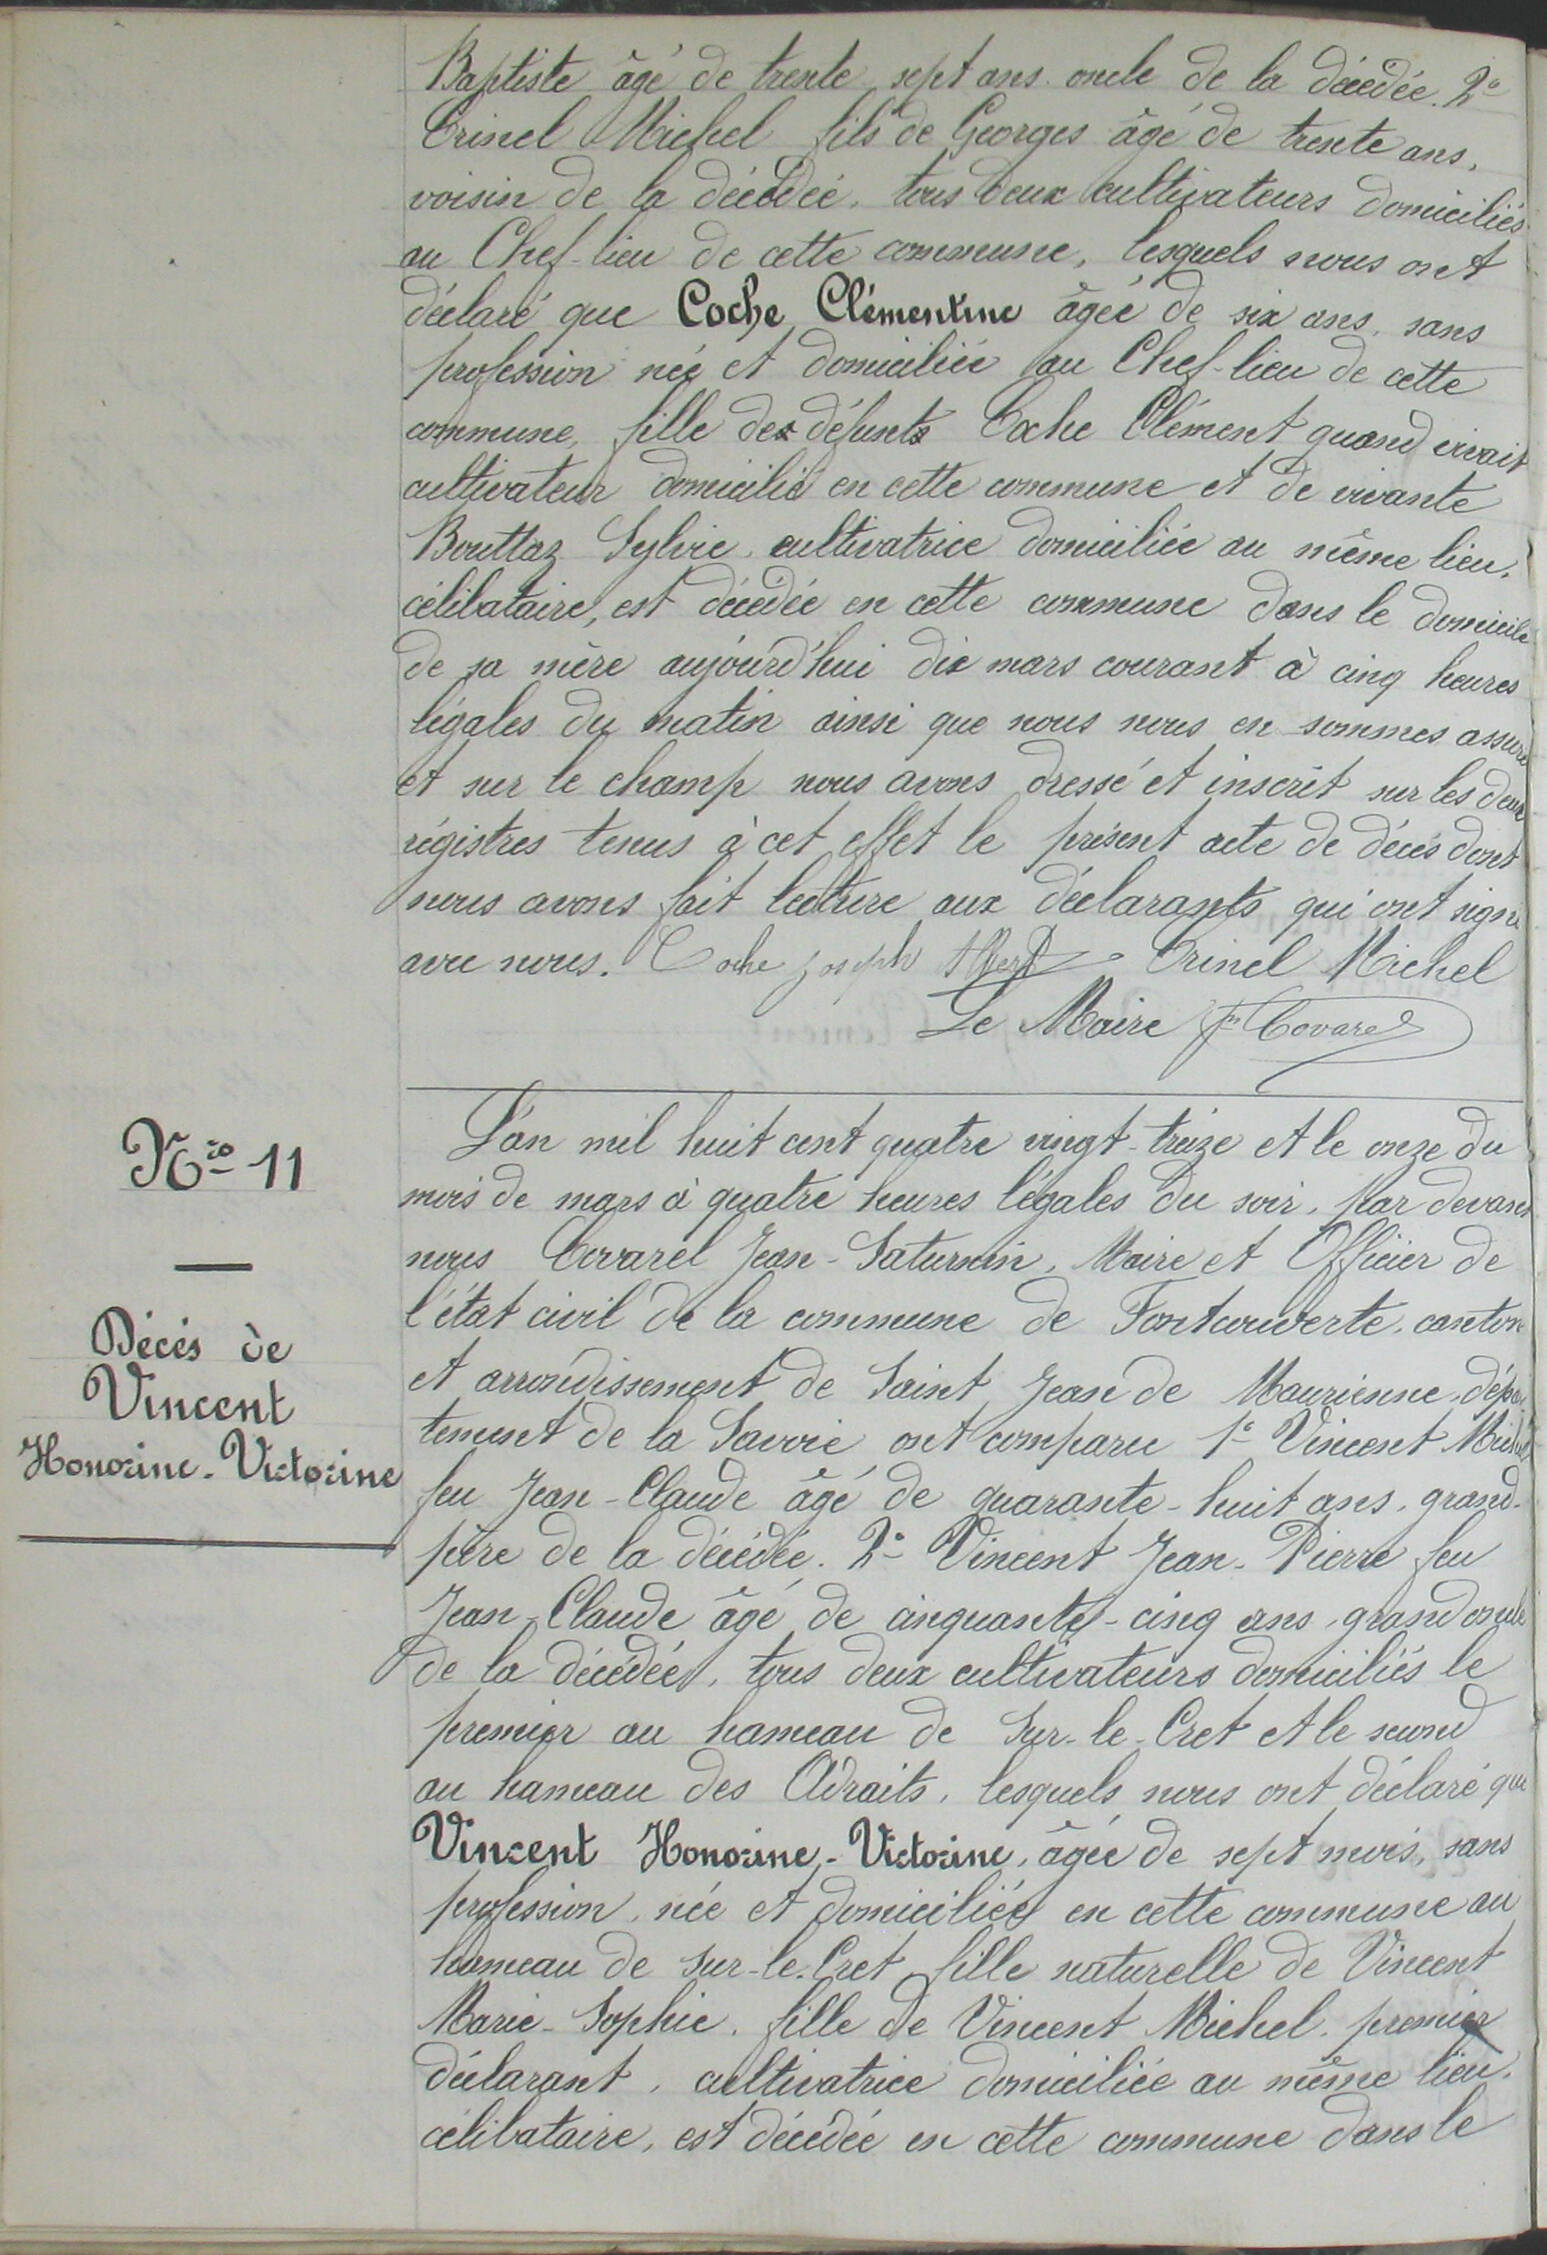 Baptiste âgé de trente sept ans. oncle de la décédée. 2°
Crinel Michel fils de Georges âgé de trente ans,
voisin de la décédée. tous deux cultivateurs domiciliés
au Chef-lieu de cette commune, lesquels nous ont
déclaré que Coche Clémentine âgée de six ans, sans
profession née et domiciliée au Chef-lieu de cette
commune, fille de défunt Coche Clément quand vivait
cultivateur domicilié en cette commune et de vivante
Bouttaz Sylvie. cultivatrice domiciliée au même lieu.
célibataire, est décédée en cette commune dans le domicile
de sa mère aujourd'hui dix mars courant à cinq heures
légales du matin ainsi que nous nous en sommes assuré
et sur le champ nous avons dressé et inscrit sur les deux
régistres tenus à cet effet le présent acte de décès dont
nous avons fait lecture aux déclarants qui ont signé
avec nous. Coche Joseph Albert Crinel Michel
Le Maire Covarel
Nro 11
Décès de
Vincent
Honorine-Victorine
L'an mil huit cent quatre vingt-treize et le onze du
mois de mars à quatre heures légales du soir, par devant
nous Covarel Jean-Saturnin, Maire et Officier de
l'état civil de la commune de Fontcouverte. canton
et arrondissement de Saint Jean de Maurienne, dépar
tement de la Savoie ont comparu 1° Vincent Michel
feu Jean-Claude âgé de quarante-huit ans, grand-
père de la décédée. 2° Vincent Jean-Pierre feu
Jean-Claude âgé de cinquante-cinq ans, grand oncle
de la décédée, tous deux cultivateurs domiciliés le
premier au hameau de Sur-le-Cret et le second
au hameau des Adraits, lesquels nous ont déclaré que
Vincent Honorine-Victorine, âgée de sept mois, sans
profession, née et domiciliée en cette commune au
hameau de Sur-le-Cret, fille naturelle de Vincent
Marie-Sophie. fille de Vincent Michel. premier
déclarant, cultivatrice domiciliée au même lieu.
célibataire, est décédée en cette commune dans le